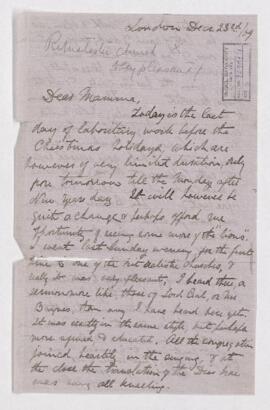 London Dec 23rd/79
Ritualistic church &
Dear Mamma,
Today is the last
day of laboratory work before the
Christmas holidays, which are
however of very limited duration, only
from tomorrow till the Monday after
New Years day. It will however be
quite a change & perhaps afford me
opportunity of seeing some more of the "lions".
I went last Sunday evening for the first
time to one of the ritualistic churches, &
really it was very pleasant, I heard there a
sermon more like those of Lord Cecil, or Mr
than any I have heard here yet.
It was exactly in the same style, but perhaps
more refined & educated. All the congregation
joined heartily in the singing, & at
the close the translation of the Dies Irae
was sung all kneeling.